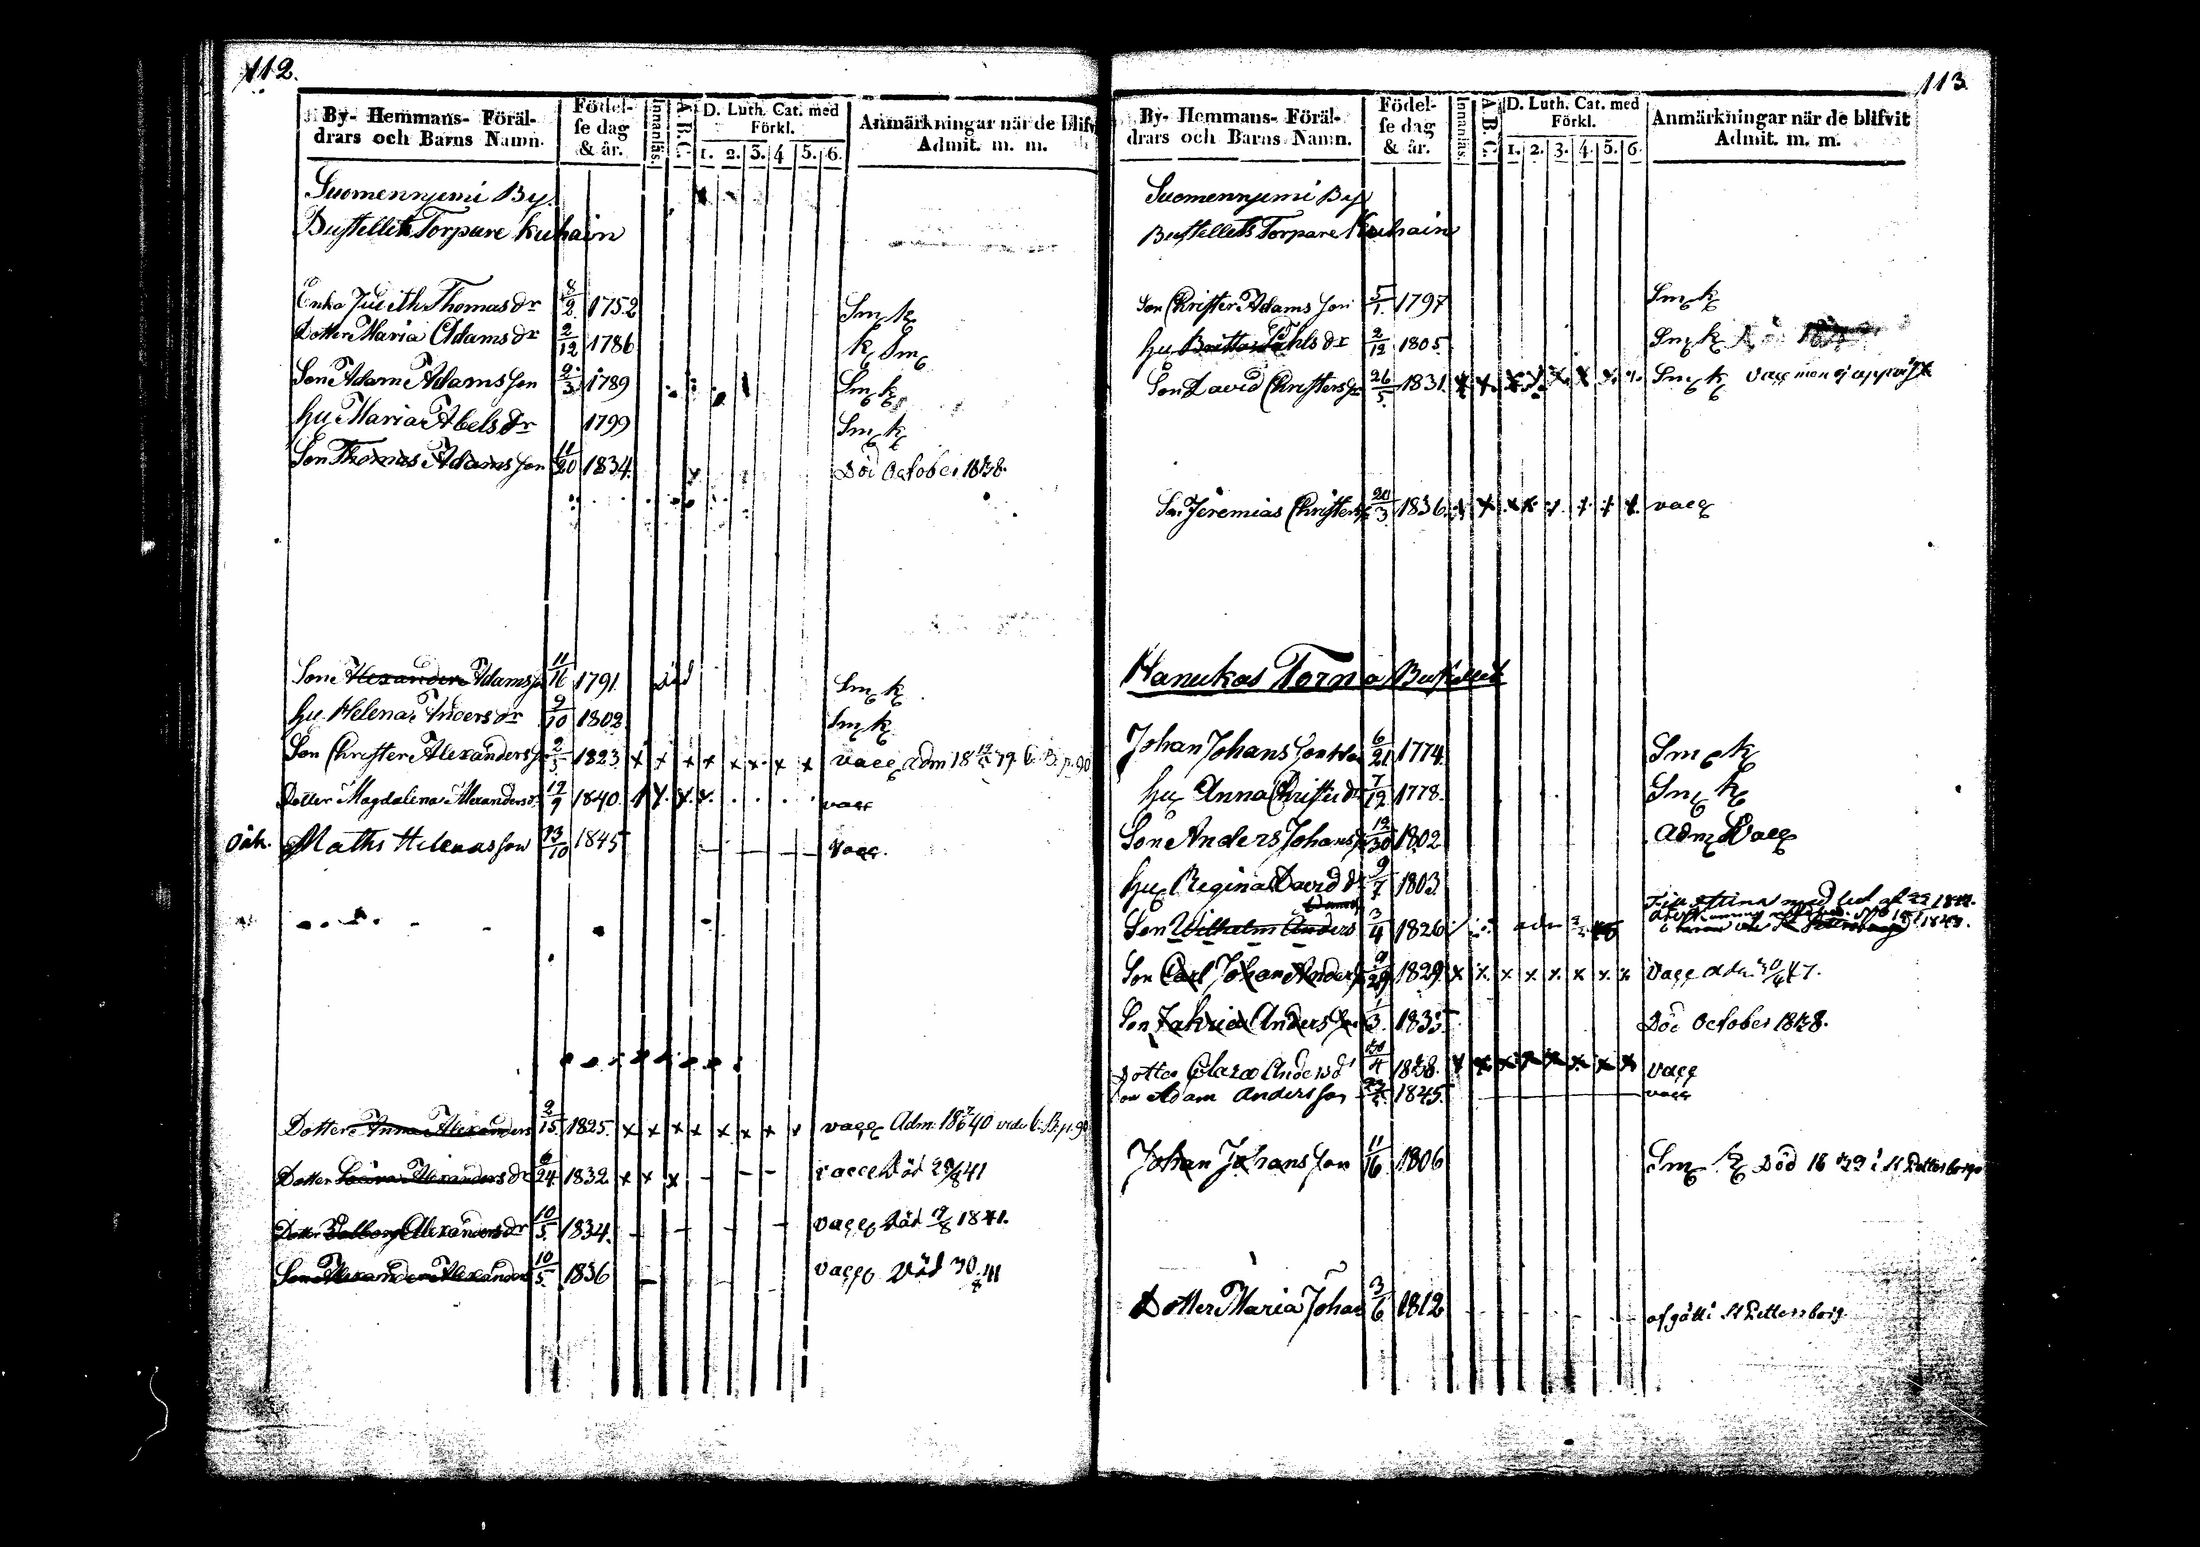 112.
By- Hemmans- Föräl-
drars och Barns Namn.
Födel-
se dag
& år.
Innanläs.
A. B. C.
D. Luth. Cat. med
Förkl.
1. 2. 3. 4 5. 6.
Anmärkningar när de blifv
Admit. m. m.
Suomennyemi By.
Bustellets Torpare Kuhain
Enka Judith Thomas dr 8/2 1752 Sm k
Dotter Maria Adams dr 2/12 1786 k Sm
Son Adam Adams Son 2/3 1789 Sm k
hu Maria Abels dr 1799 Sm k
Son Thomas Adams Son 11/20 1834. Död October 1838.
Son Alexander Adams 11/16 1791. död Sm k
hu Helena Anders dr 9/10 1802 Sm k
Son Christer Alexanders 1823 x x x x x x x x vacc adm
Dotter Magdalena Alexanders 12/9 1840 vacc
Oäk. Maths Helenas Son 13/10 1845 vacc.
Dotter Anna Alexanders 9/15 1825. x x x x x x x x vacc Adm.
Dotter Alexanders dr 6/24 1832 x x x vacc Död 41
Dotter Walborg Alexanders dr 10/5 1834. vacc död 9/8 1841.
Son Alexander Alexanders 10/5 1836 vacc Död 30/8 41
113
By- Hemmans- Föräl-
drars och Barns Namn.
Födel-
se dag
& år.
Innanläs.
A. B. C.
D. Luth. Cat. med
Förkl.
1. 2. 3. 4. 5. 6.
Anmärkningar när de blifvit
Admit. m. m.
Suomennyemi By
Bustellets Torpare Kuhain
Son Christer Adams Son 5/1 1797 Sm k
hu Britta dr 2/12 1805. Sm k
Son David Christers 26/5 1831. Sm k vacc men ej
Son Jeremias Christers 20/3 1836. vacc
Hanukas Torp a Bustellet
Johan Johans Son 6/21 1774. Sm k
hu Anna Christer dr 7/12 1778. Sm k
Son Anders Johans 12/30 1802 adm Vacc
hu Regina David dr 9/7 1803.
Son Wilhelm Anders 3/4 1826 adm
Son Carl Johan Anders 9/29 1829. x x x x x x x x Vacc adm 47.
Son Zakrias Anders Son 1/3 1835. Död October 1838.
Dotter Clara Anders dr 1838. vacc
Son Adam Andersson 1845. vacc
Johan Johans Son 11/16 1806 Sm k Död i St Pettersborg
Dotter Maria Johan 3/6 1812 afgått i St Pettersborg